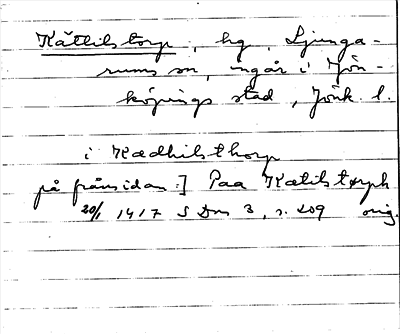 Kättilstorp, hg, Ljunga-
rums sn, ingår i Jön-
köpings stad, Jönk l.
i Kædhilsthorp
på frånsidan:] Paa Kætilstorph
20/1 1417 SDns 3, s. 209 orig.